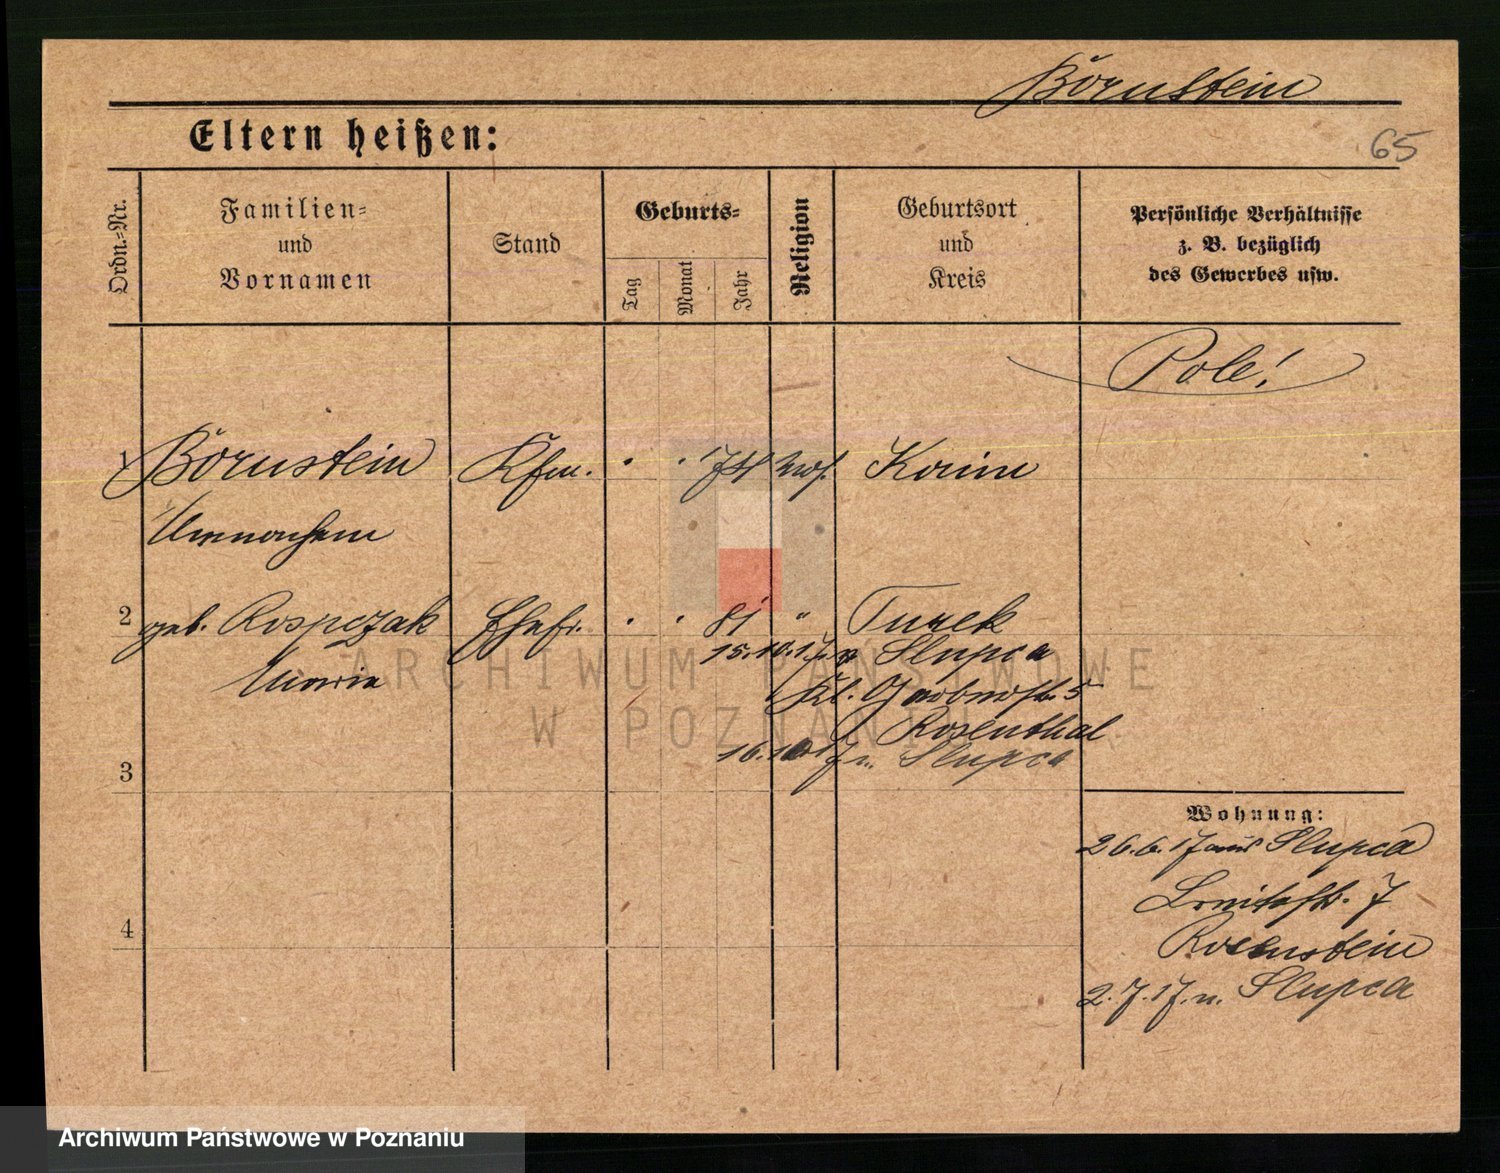 Börnstein
Eltern heißen:
65
Ordn.=Nr.
Familien=
und
Vornamen
Stand
Geburts=
Tag
Monat
Jahr
Religion
Geburtsort
und
Kreis
Persönliche Verhältnisse
z. B. bezüglich
des Gewerbes usw.
Pole!
1 Börnstein Kfm. mos. Konin
2 geb. Rospczak Ehefr. 81 " Turek
Maria
15.10.17 v Slupca
Kl. Gerberstr. 5
Rosenthal
16.10.17 n. Slupca
3
4
Wohnung:
26.6.17 aus Slupca
Breitestr. 7
2.7.17. n. Slupca
ARCHIWUM PAŃSTWOWE
W POZNANIU
Archiwum Państwowe w Poznaniu